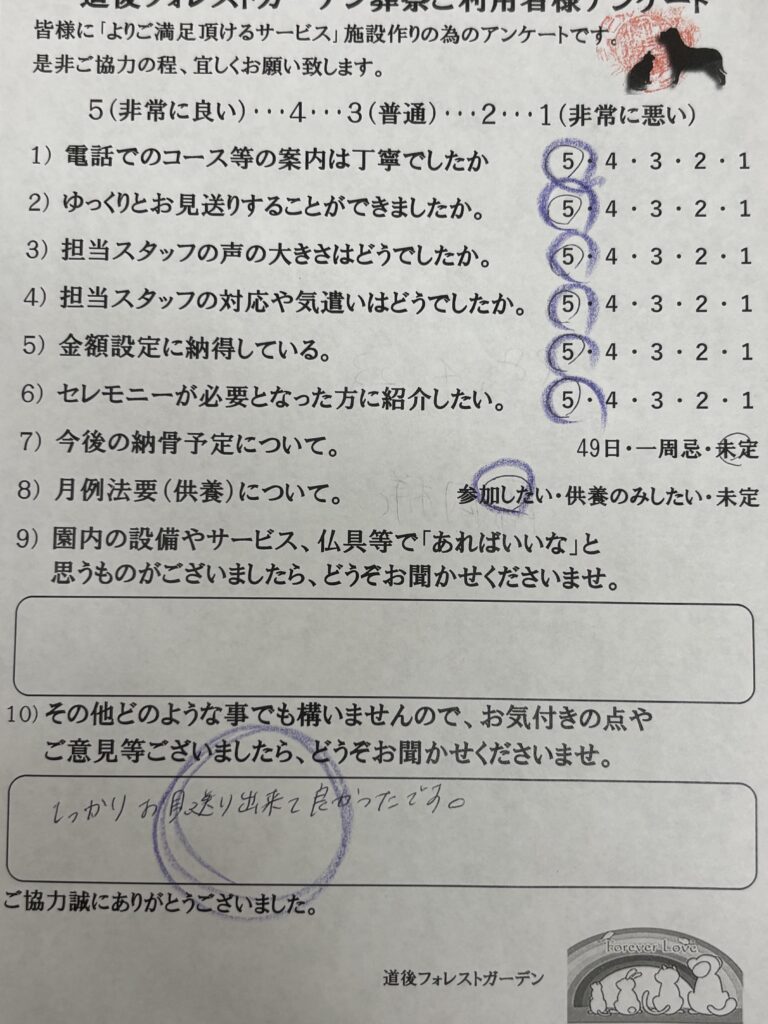 道後フォレストガーデン葬祭ご利用者様アンケート
皆様に「よりご満足頂けるサービス」施設作りの為のアンケートです。
是非ご協力の程、宜しくお願い致します。
5(非常に良い)・・・4・・・3(普通)・・・2・・・1(非常に悪い)
1) 電話でのコース等の案内は丁寧でしたか 5・4・3・2・1
2) ゆっくりとお見送りすることができましたか。 5・4・3・2・1
3) 担当スタッフの声の大きさはどうでしたか。 5・4・3・2・1
4) 担当スタッフの対応や気遣いはどうでしたか。 5・4・3・2・1
5) 金額設定に納得している。 5・4・3・2・1
6) セレモニーが必要となった方に紹介したい。 5・4・3・2・1
7) 今後の納骨予定について。 49日・一周忌・未定
8) 月例法要(供養)について。 参加したい・供養のみしたい・未定
9) 園内の設備やサービス、仏具等で「あればいいな」と
思うものがございましたら、どうぞお聞かせくださいませ。
10) その他どのような事でも構いませんので、お気付きの点や
ご意見等ございましたら、どうぞお聞かせくださいませ。
しっかりお見送り出来て良かったです。
ご協力誠にありがとうございました。
Forever Love
道後フォレストガーデン